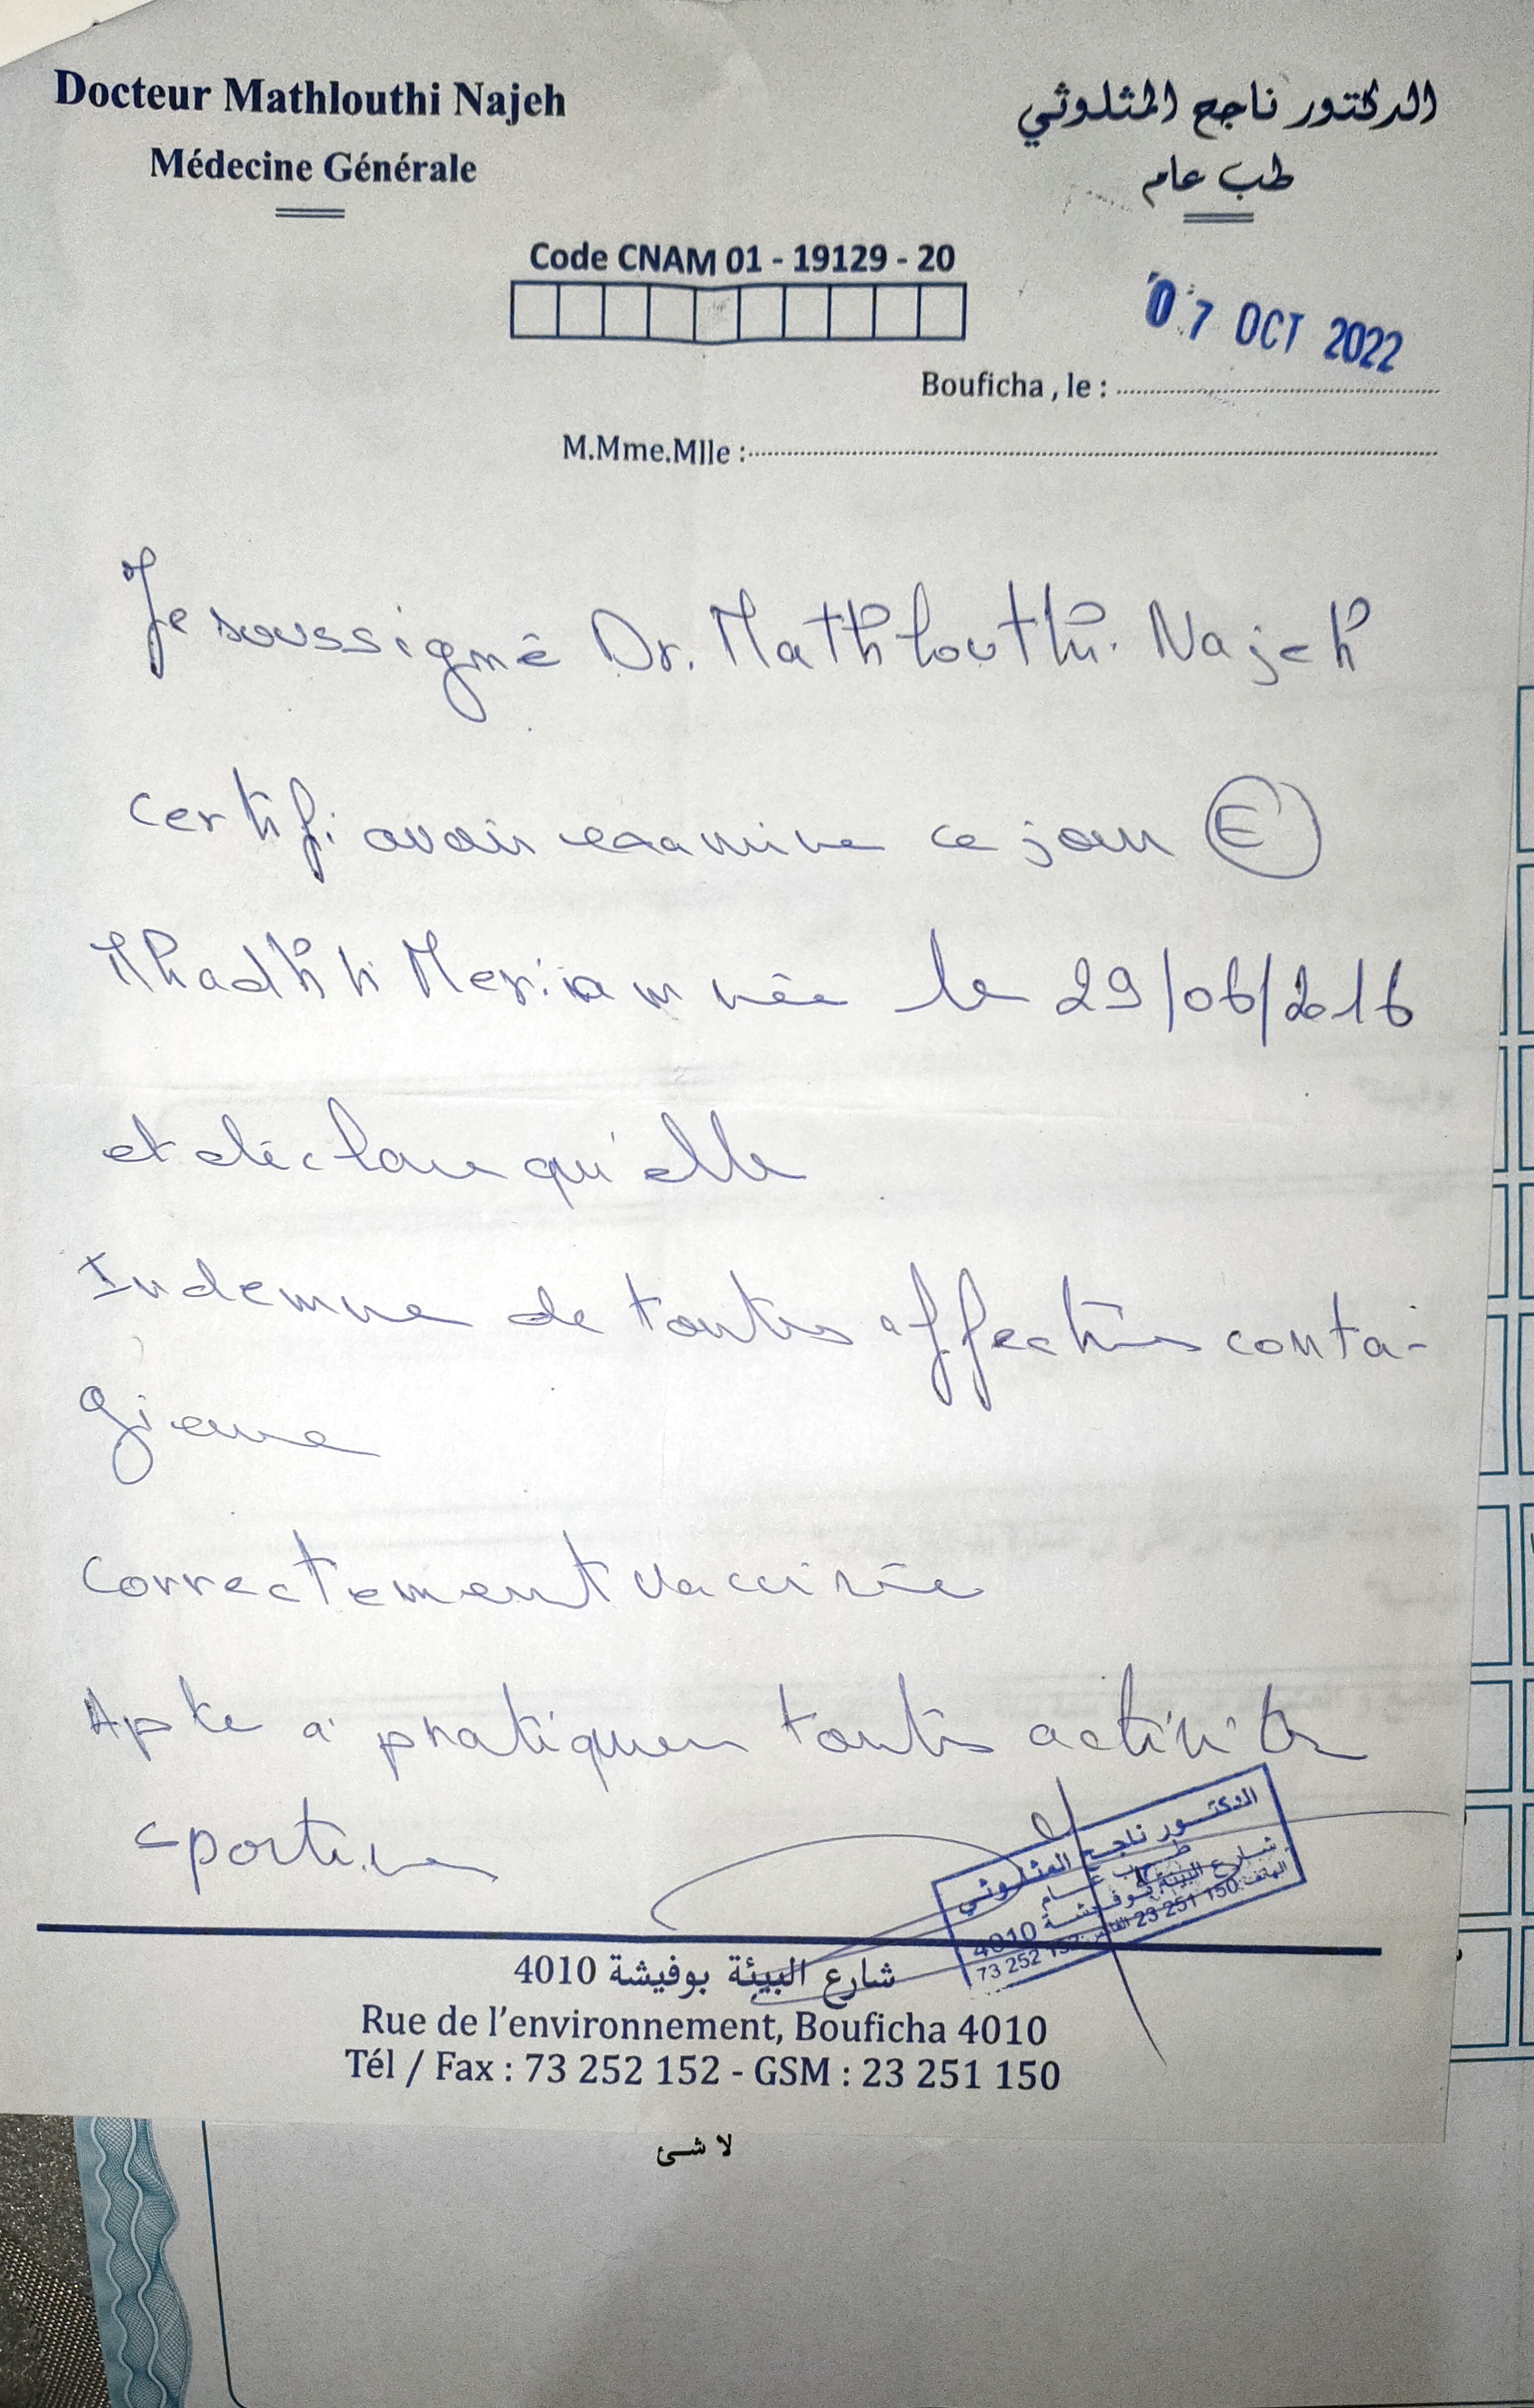 Docteur Mathlouthi Najeh
الدكتور ناجح المثلوثي
Médecine Générale
طب عام
Code CNAM 01 - 19129 - 20
07 OCT 2022
Bouficha , le :
M.Mme.Mlle :
Je soussigné Dr. Mathlouthi. Najeh
certifi avoir examine ce jour E
Khadhhi Meriam née le 29/06/2016
et déclare qu'elle
Indemne de toutes affections conta-
gieuse
correctement vaccinée
Apte à pratiquer toutes activités
sportive
الدكتور ناجح المثلوثي
طب عام
شارع البيئة بوفيشة 4010
الهاتف: 150 251 23 الفاكس: 152 252 73
شارع البيئة بوفيشة 4010
Rue de l'environnement, Bouficha 4010
Tél / Fax : 73 252 152 - GSM : 23 251 150
لا شئ